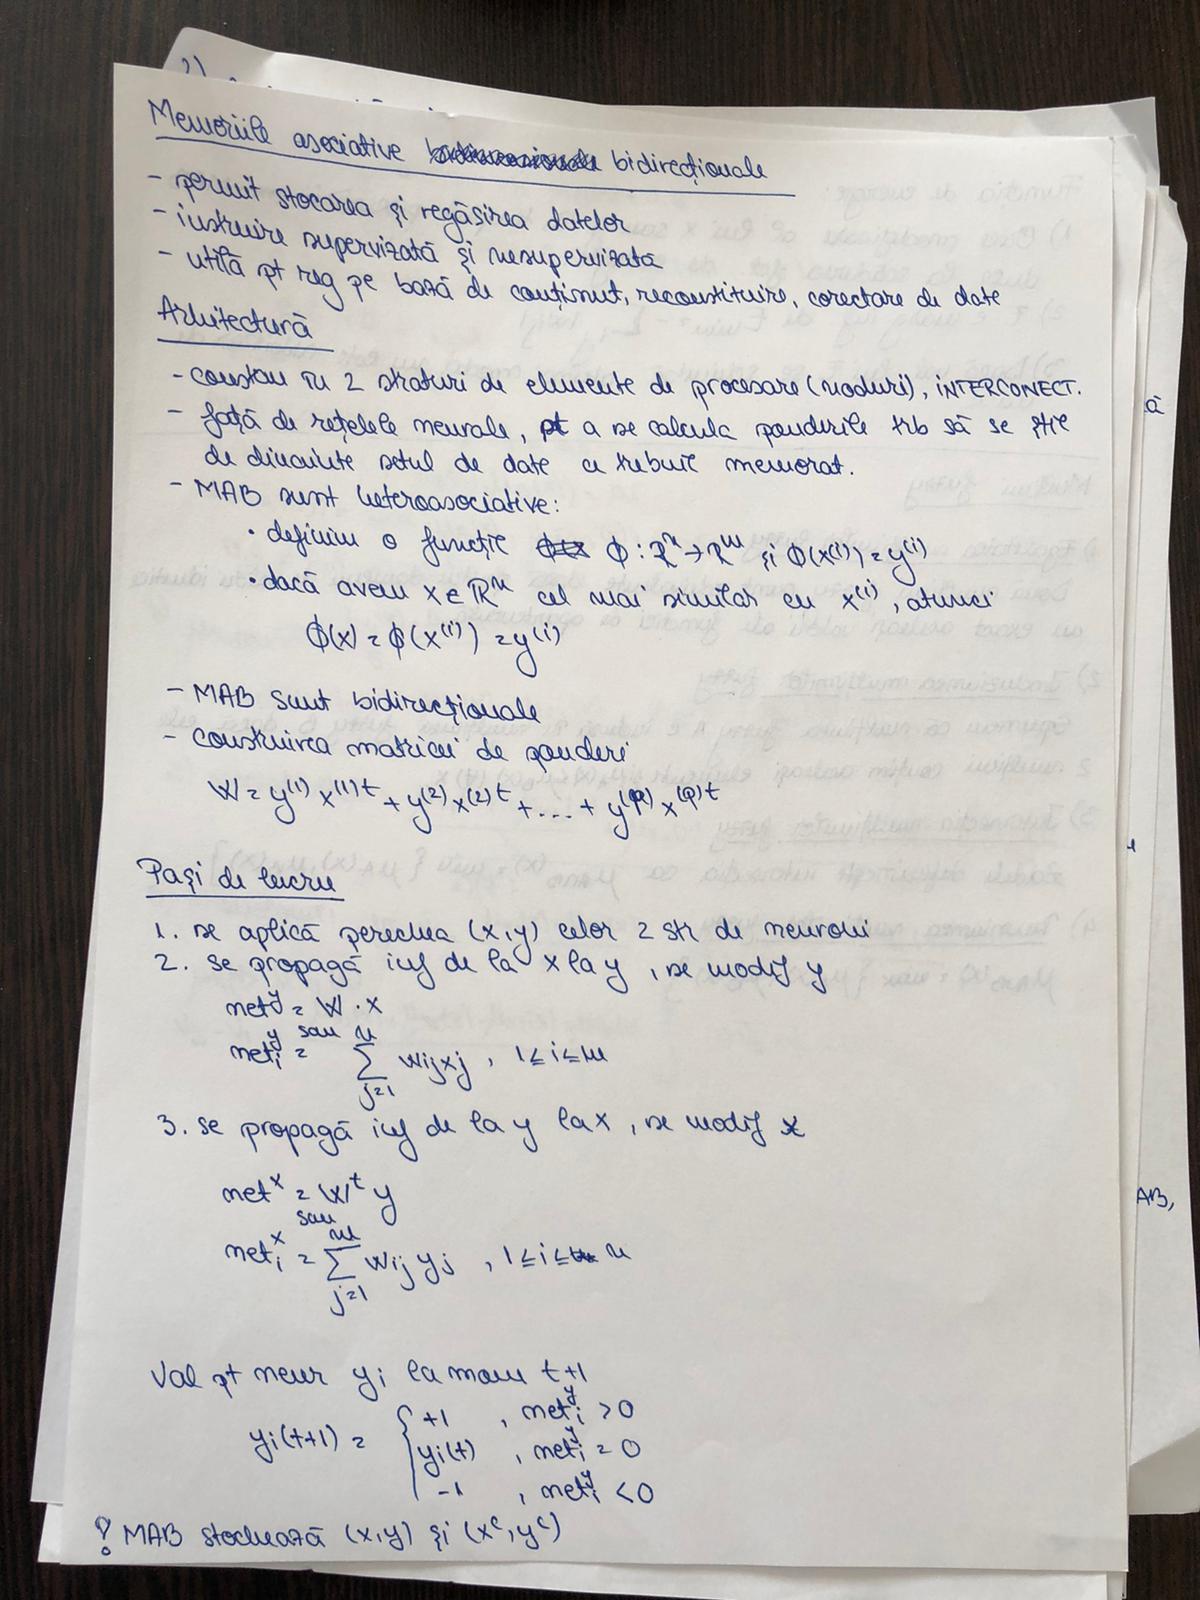 Memoriile asociative bidirecționale
- permit stocarea și regăsirea datelor
- instruire supervizată și nesupervizată
- utilă pt reg pe bază de conținut, reconstituire, corectare de date
Arhitectură
- constau în 2 straturi de elemente de procesare (noduri), INTERCONECT.
- față de rețelele neurale, pt a se calcula ponderile trb să se știe
de dinainte setul de date ce trebuie memorat.
- MAB sunt heteroasociative:
• definim o funcție ϕ : R^n → R^m și ϕ(x^(i)) = y^(i)
• dacă avem x ∈ R^n cel mai similar cu x^(i), atunci
ϕ(x) = ϕ(x^(i)) = y^(i)
- MAB sunt bidirecționale
- construirea matricei de ponderi
W = y^(1) x^(1)t + y^(2) x^(2)t + ... + y^(p) x^(p)t
Pași de lucru
1. se aplică perechea (x,y) celor 2 str de neuroni
2. se propagă inf de la x la y, se modif y
net^y = W · x
sau
net_i^y = ∑_{j=1}^{n} w_ij x_j , 1 ≤ i ≤ m
3. se propagă inf de la y la x, se modif x
net^x = W^t y
sau
net_i^x = ∑_{j=1}^{m} w_ij y_j , 1 ≤ i ≤ n
Val pt neur y_i la mom t+1
y_i(t+1) = { +1 , net_i^y > 0
y_i(t) , net_i^y = 0
-1 , net_i^y < 0
! MAB stochează (x,y) și (x^c, y^c)
AB,